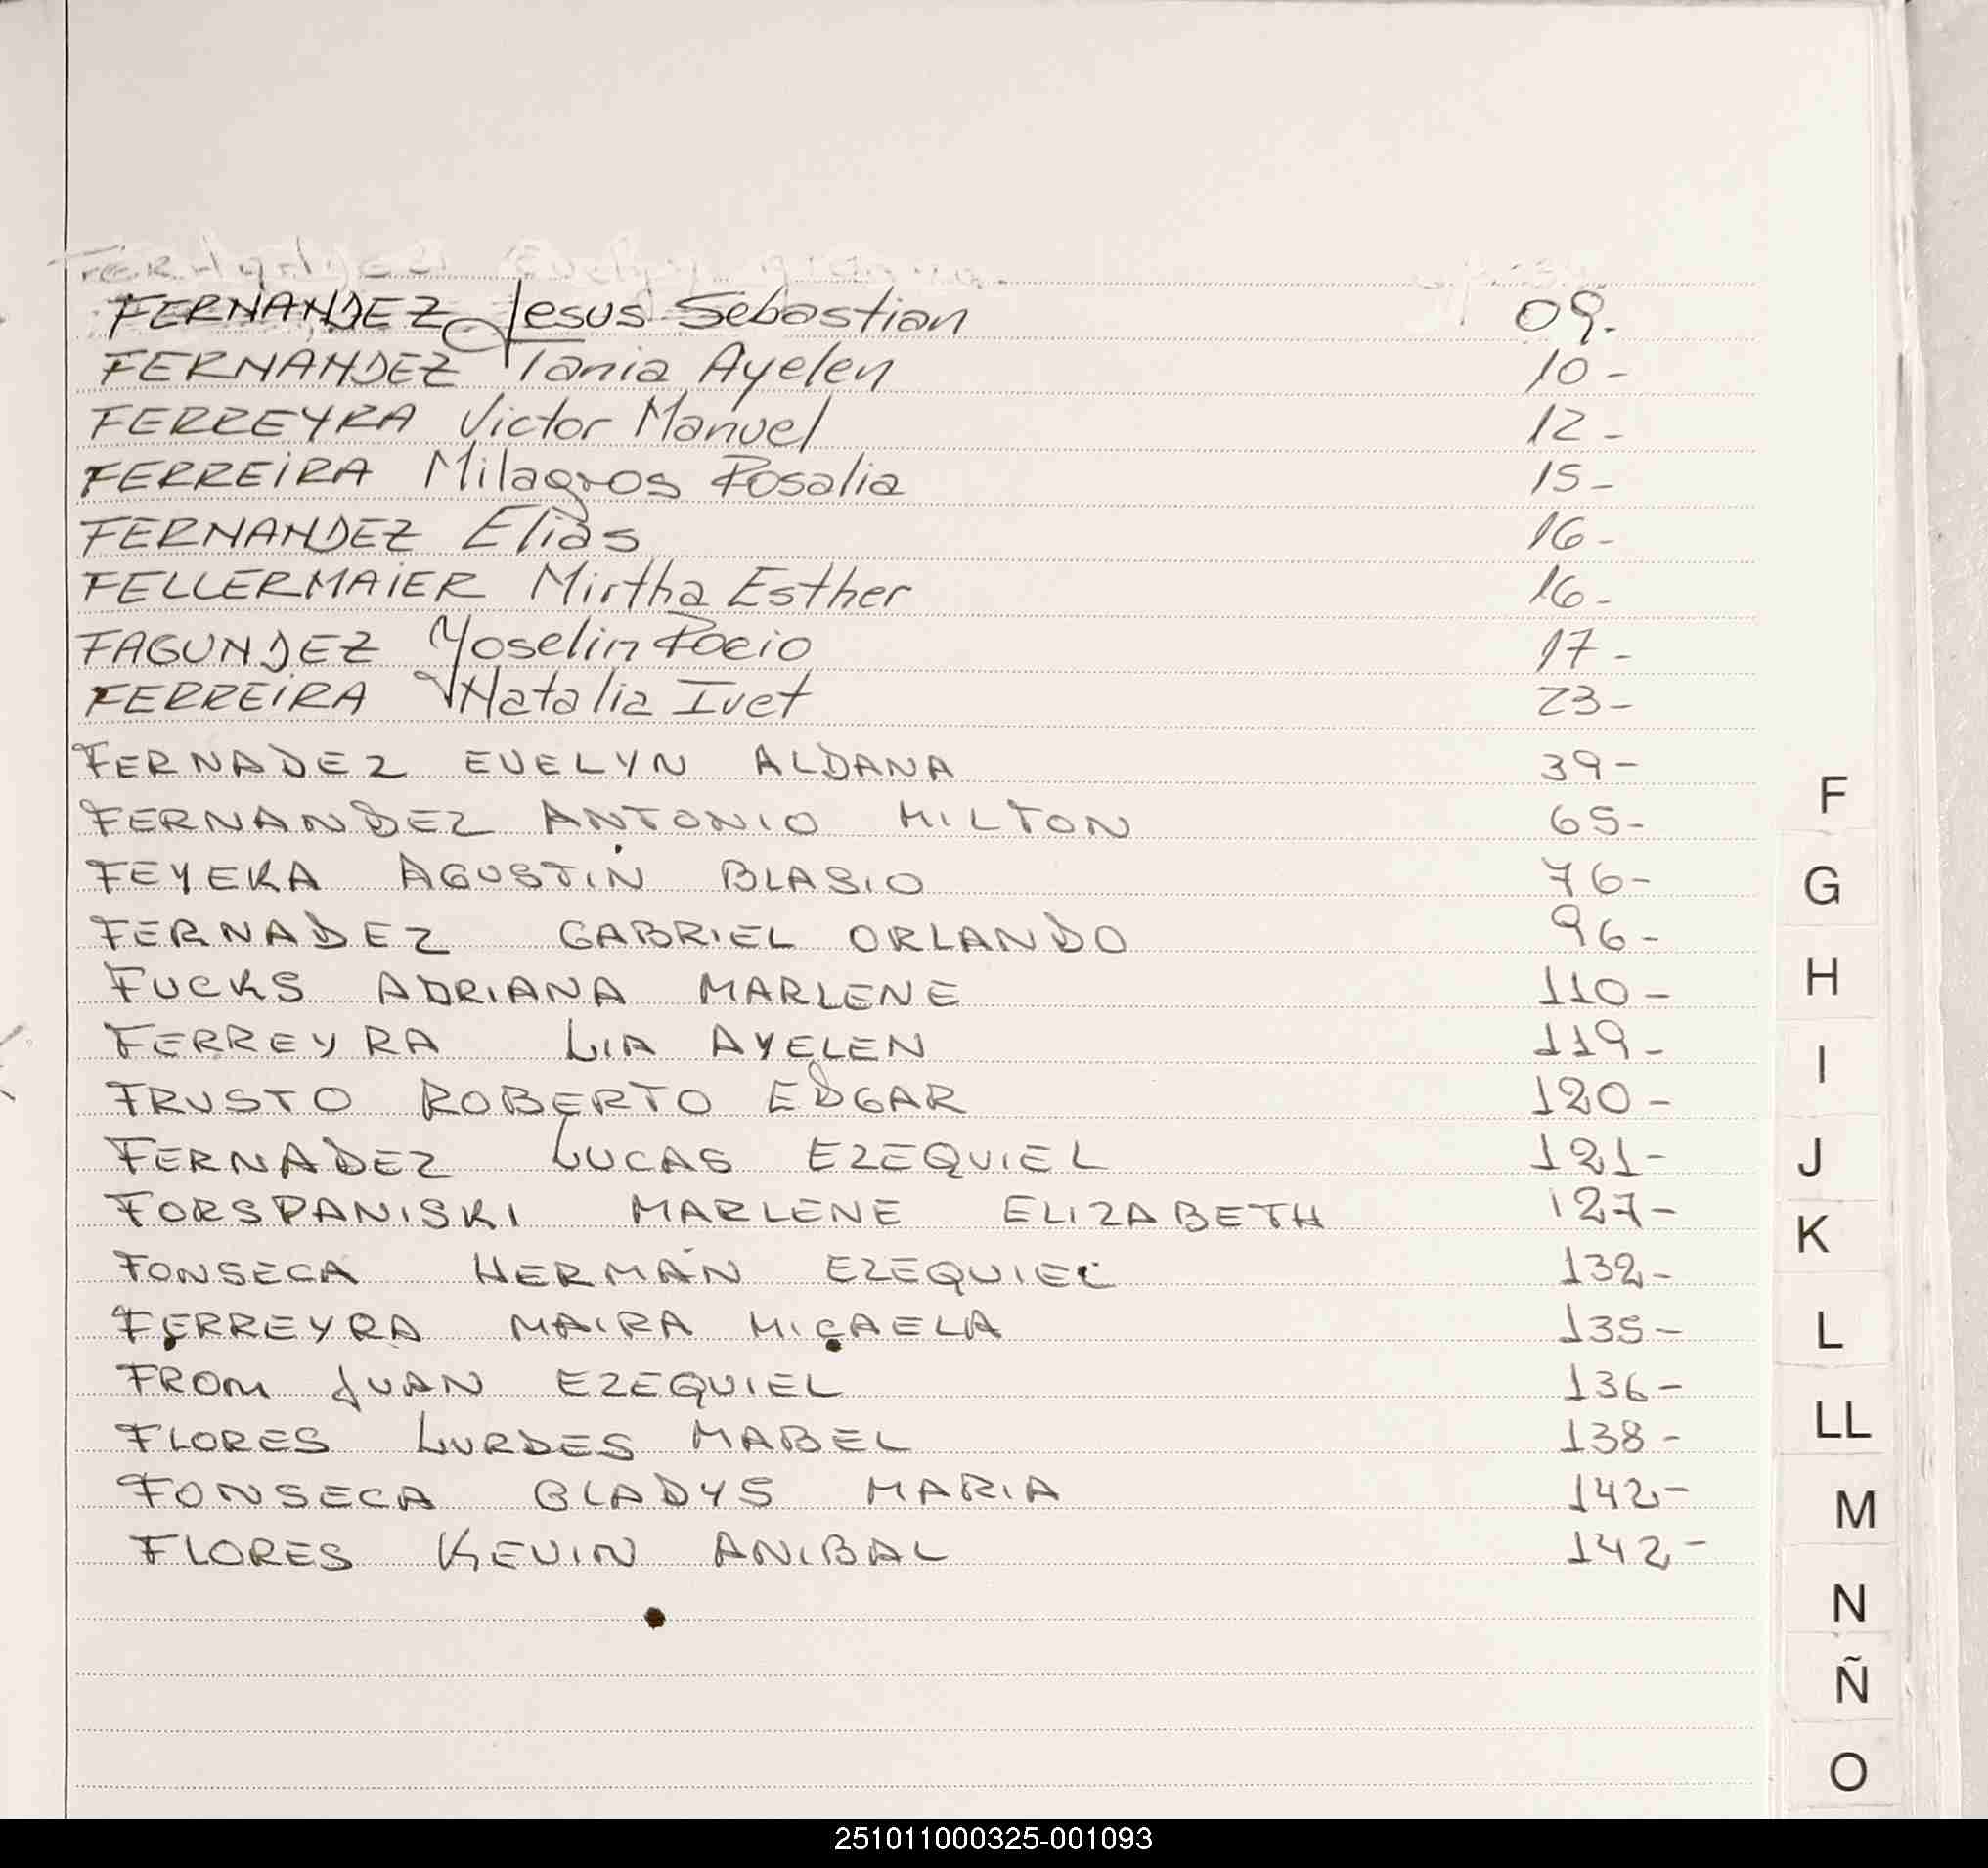 FERNANDEZ Jesus Sebastian 09.
FERNANDEZ Tania Ayelen 10-
FERREYRA Victor Manuel 12-
FERREiRA Milagros Rosalia 15-
FERNANDEZ Elias 16-
FELLERMAiER Mirtha Esther 16-
FAGUNDEZ Yoselin Rocio 17-
FERREiRA Natalia Ivet 23-
FERNADEZ EVELYN ALDANA 39-
FERNANDEZ ANTONIO MILTON 65-
FEYERA AGUSTIN BLASIO 76-
FERNADEZ GABRIEL ORLANDO 96-
FUCKS ADRIANA MARLENE 110-
FERREYRA LIA AYELEN 119-
FRUSTO ROBERTO EDGAR 120-
FERNADEZ LUCAS EZEQUIEL 121-
FORSPANISKI MARLENE ELIZABETH 127-
FONSECA HERMÁN EZEQUIEL 132-
FERREYRA MAIRA MICAELA 135-
FROM JUAN EZEQUIEL 136-
FLORES LURDES MABEL 138-
FONSECA GLADYS MARIA 142-
FLORES KEVIN ANIBAL 142-
F
G
H
I
J
K
L
LL
M
N
Ñ
O
251011000325-001093